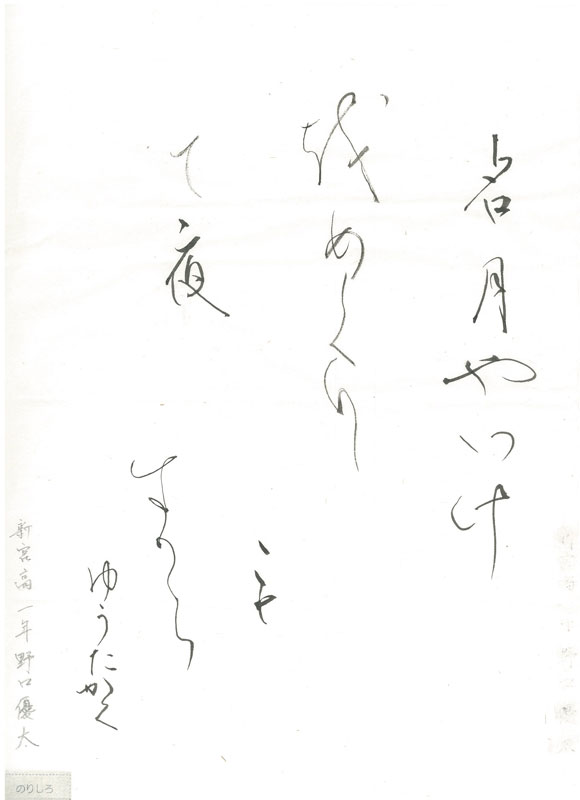 名月やいけ
越めくり
て夜
も
すから
ゆうたかく
新宮高一年野口優太
のりしろ